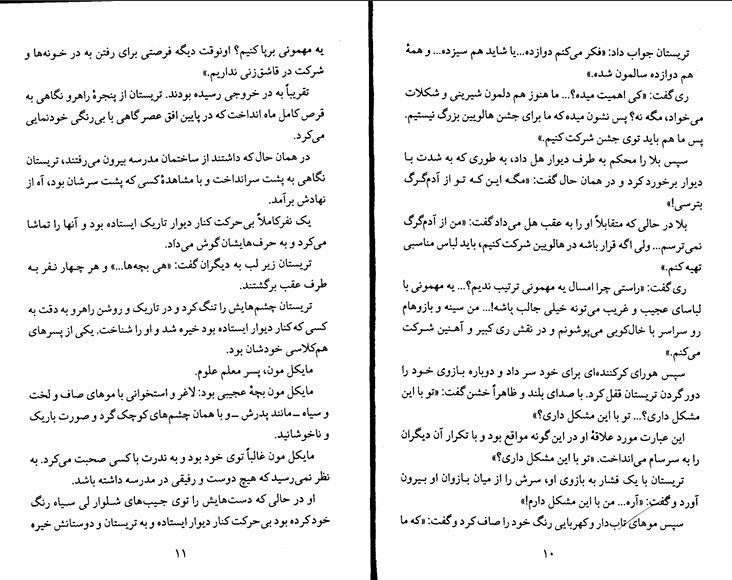 تریستان جواب داد: «فکر می‌کنم دوازده...یا شاید هم سیزده... و همهٔ
هم دوازده سالمون شده.»
ری گفت: «کی اهمیت میده؟... ما هنوز هم دلمون شیرینی و شکلات
می‌خواد، مگه نه؟ پس نشون میده که ما برای جشن هالووین بزرگ نیستیم.
پس ما هم باید توی جشن شرکت کنیم.»
سپس بلا را محکم به طرف دیوار هل داد، به طوری که به شدت با
دیوار برخورد کرد و در همان حال گفت: «مگه این که تو از آدم‌گرگ
بترسی!»
بلا در حالی که متقابلاً او را به عقب هل می‌داد گفت: «من از آدم‌گرگ
نمی‌ترسم... ولی اگه قرار باشه در هالووین شرکت کنیم، باید لباس مناسبی
تهیه کنم.»
ری گفت: «راستی چرا امسال یه مهمونی ترتیب ندیم؟... یه مهمونی با
لباسای عجیب و غریب می‌تونه خیلی جالب باشه!... من سینه و بازوهام
رو سراسر با خال‌کوبی می‌پوشونم و در نقش ری کبیر و آهنین شرکت
می‌کنم.»
سپس هورای کرکننده‌ای برای خود سر داد و دوباره بازوی خود را
دور گردن تریستان قفل کرد. با صدای بلند و ظاهراً خشن گفت: «تو با این
مشکل داری؟... تو با این مشکل داری؟»
این عبارت مورد علاقهٔ او در این گونه مواقع بود و با تکرار آن دیگران
را به سرسام می‌انداخت. «تو با این مشکل داری؟»
تریستان با یک فشار به بازوی او، سرش را از میان بازوان او بیرون
آورد و گفت: «آره... من با این مشکل دارم!»
سپس موهای تاب‌دار و کهربایی رنگ خود را صاف کرد و گفت: «که ما
۱۰
یه مهمونی برپا کنیم؟ اونوقت دیگه فرصتی برای رفتن به در خونه‌ها و
شرکت در قاشق‌زنی نداریم.»
تقریباً به در خروجی رسیده بودند. تریستان از پنجرهٔ راهرو نگاهی به
قرص کامل ماه انداخت که در پایین افق عصرگاهی با بی‌رنگی خودنمایی
می‌کرد.
در همان حال که داشتند از ساختمان مدرسه بیرون می‌رفتند، تریستان
نگاهی به پشت سر انداخت و با مشاهدهٔ کسی که پشت سرشان بود، آه از
نهادش برآمد.
یک نفر کاملاً بی‌حرکت کنار دیوار تاریک ایستاده بود و آنها را تماشا
می‌کرد و به حرف‌هایشان گوش می‌داد.
تریستان زیر لب به دیگران گفت: «هی بچه‌ها...» و هر چهار نفر به
طرف عقب برگشتند.
تریستان چشم‌هایش را تنگ کرد و در تاریک و روشن راهرو به دقت به
کسی که کنار دیوار ایستاده بود خیره شد و او را شناخت. یکی از پسرهای
هم‌کلاسی خودشان بود.
مایکل مون، پسر معلم علوم.
مایکل مون بچهٔ عجیبی بود: لاغر و استخوانی با موهای صاف و لخت
و سیاه ـ مانند پدرش ـ و با همان چشم‌های کوچک گرد و صورت باریک
و ناخوشانید.
مایکل مون غالباً توی خود بود و به ندرت با کسی صحبت می‌کرد. به
نظر نمی‌رسید که هیچ دوست و رفیقی در مدرسه داشته باشد.
او در حالی که دست‌هایش را توی جیب‌های شلوار لی سیاه رنگ
خود کرده بود بی‌حرکت کنار دیوار ایستاده و به تریستان و دوستانش خیره
۱۱